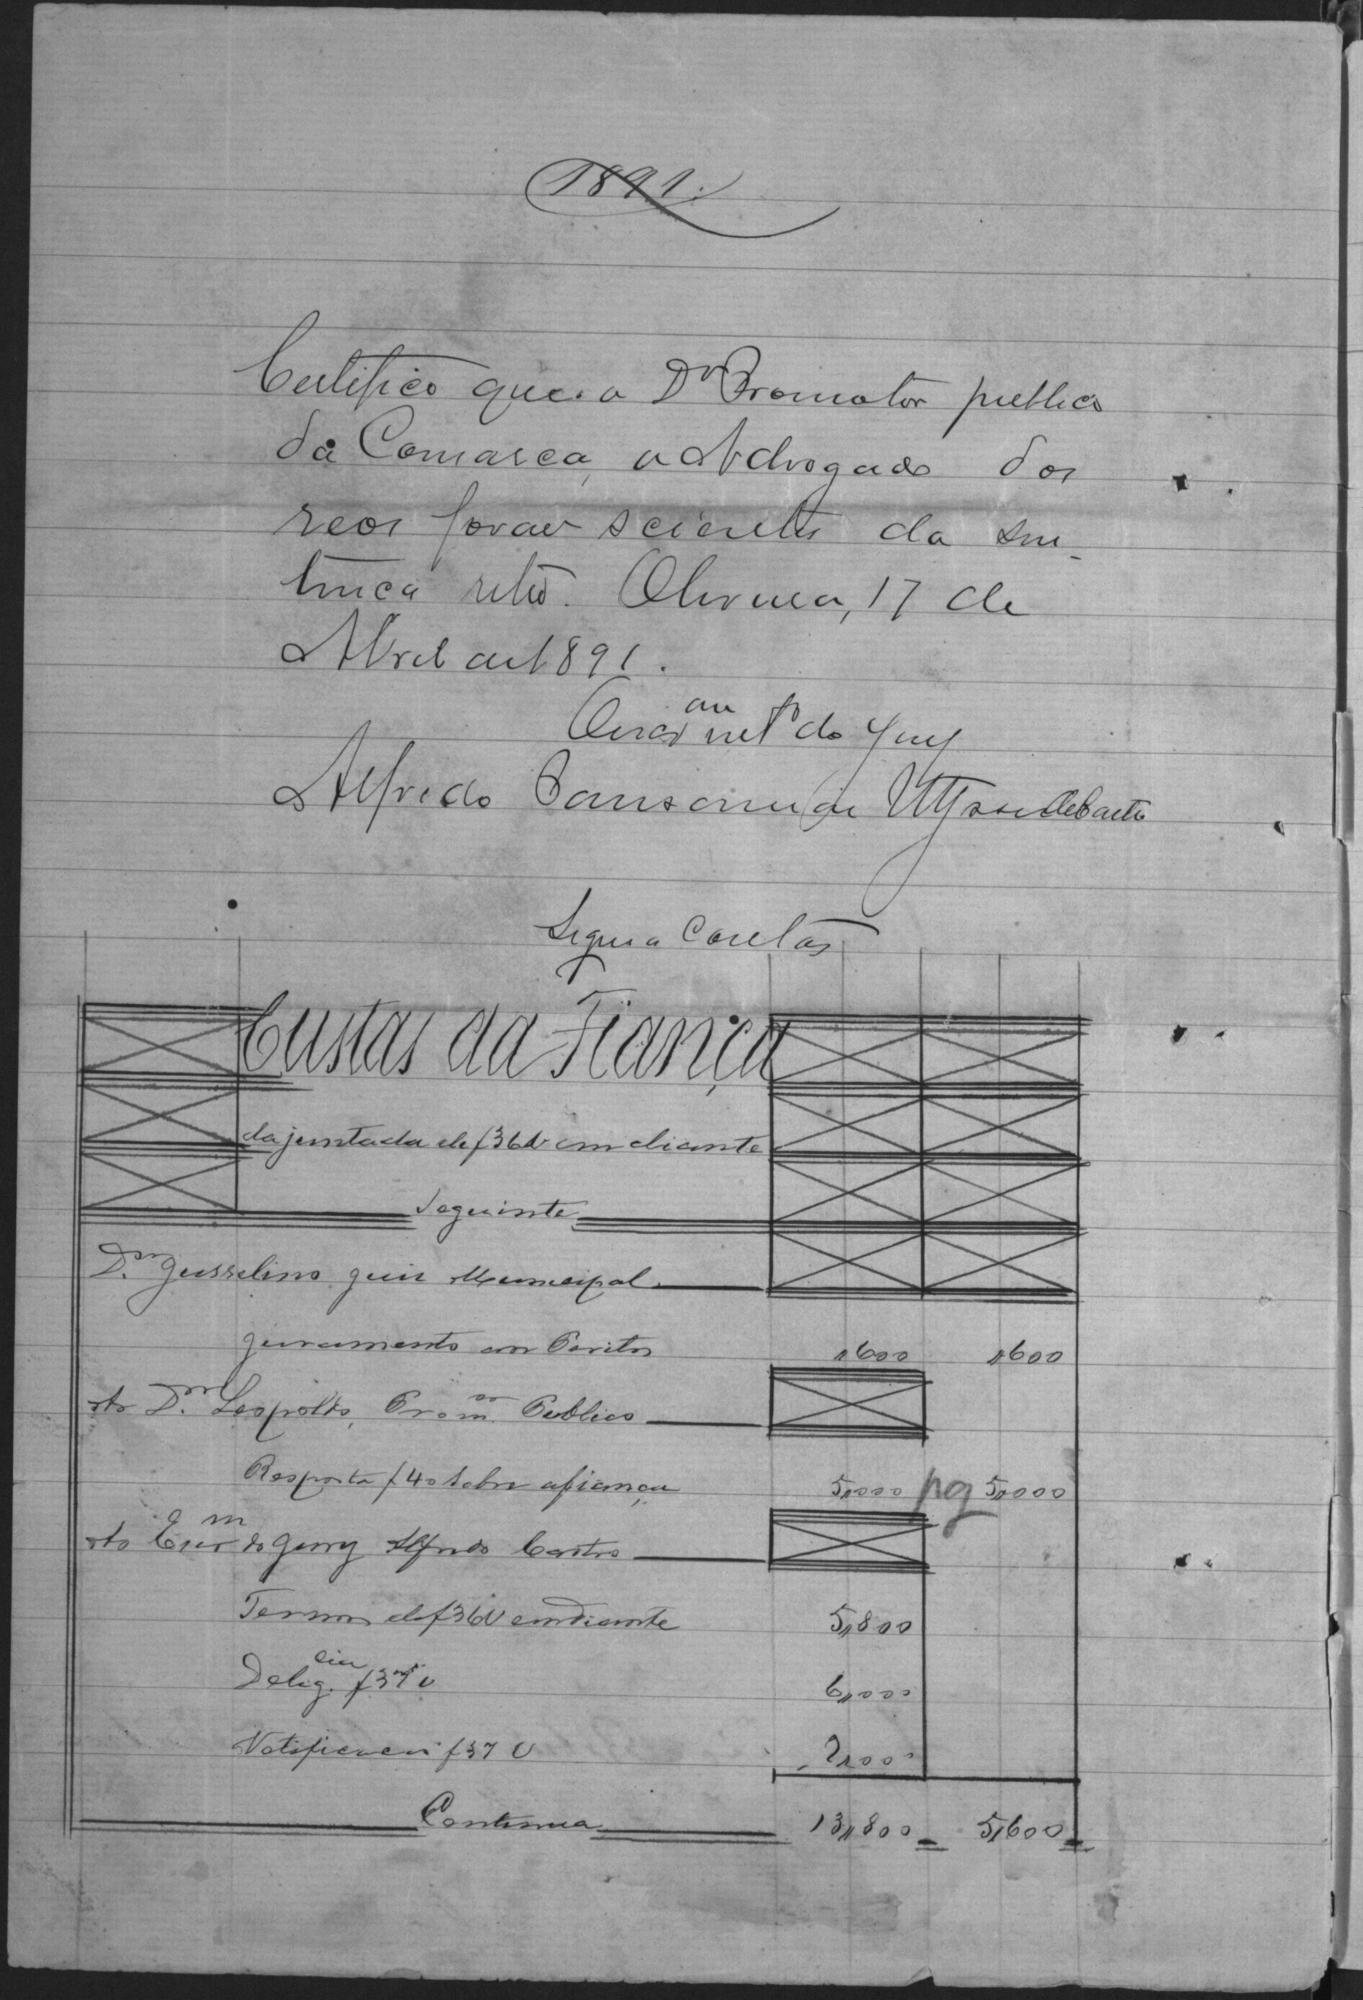 1891.
Certifico que o Dr Promotor publico
da Comarca, o Advogado dos
reos forão scientes da sen-
tença retro. Oliveira, 17 de
Abril de 1891.
Escram intº do Jury
Alfredo de Castro
Segue a Conta
Custas da Fiança
da juntada de f 36v em diante
Seguinte
Dr. Jusselino juiz Municipal
Juramento aos Peritos 1600 1600
Ao Dr. Leopoldo, Promor Publico
Resposta f 40 sobre a fiança 5,000 pg 5,000
Ao Escrm do Jury Alfredo Castro
Termos de f 36v em diante 5,800
Deligcia f 37 v 6,000
Notificacão f 37 v 2,000
Continua 13,800 5,600